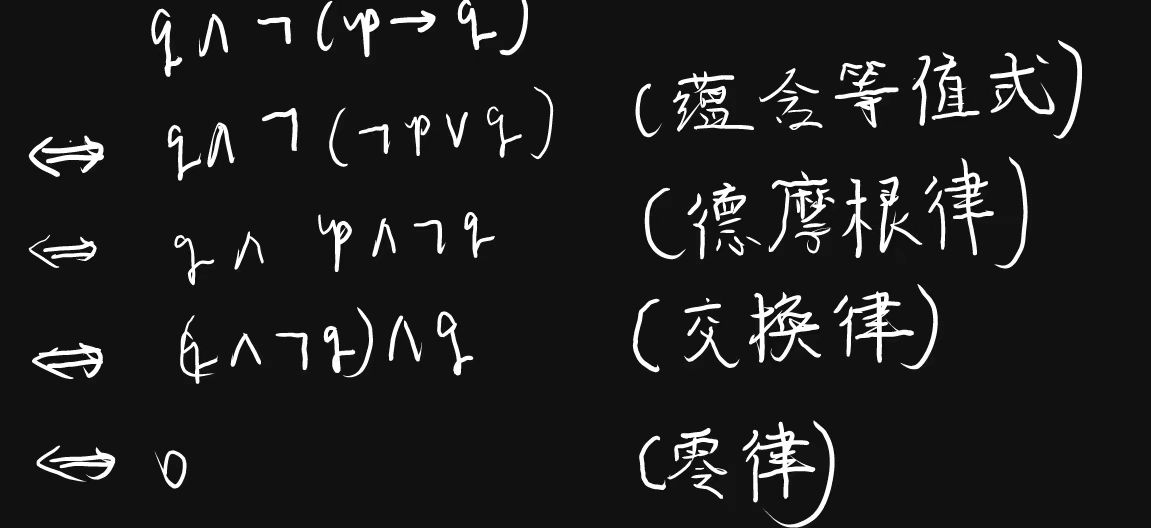 q∧¬(p→q)
⇔ q∧¬(¬p∨q) (蕴含等值式)
⇔ q∧ p∧¬q (德摩根律)
⇔ (q∧¬q)∧q (交换律)
⇔ 0 (零律)